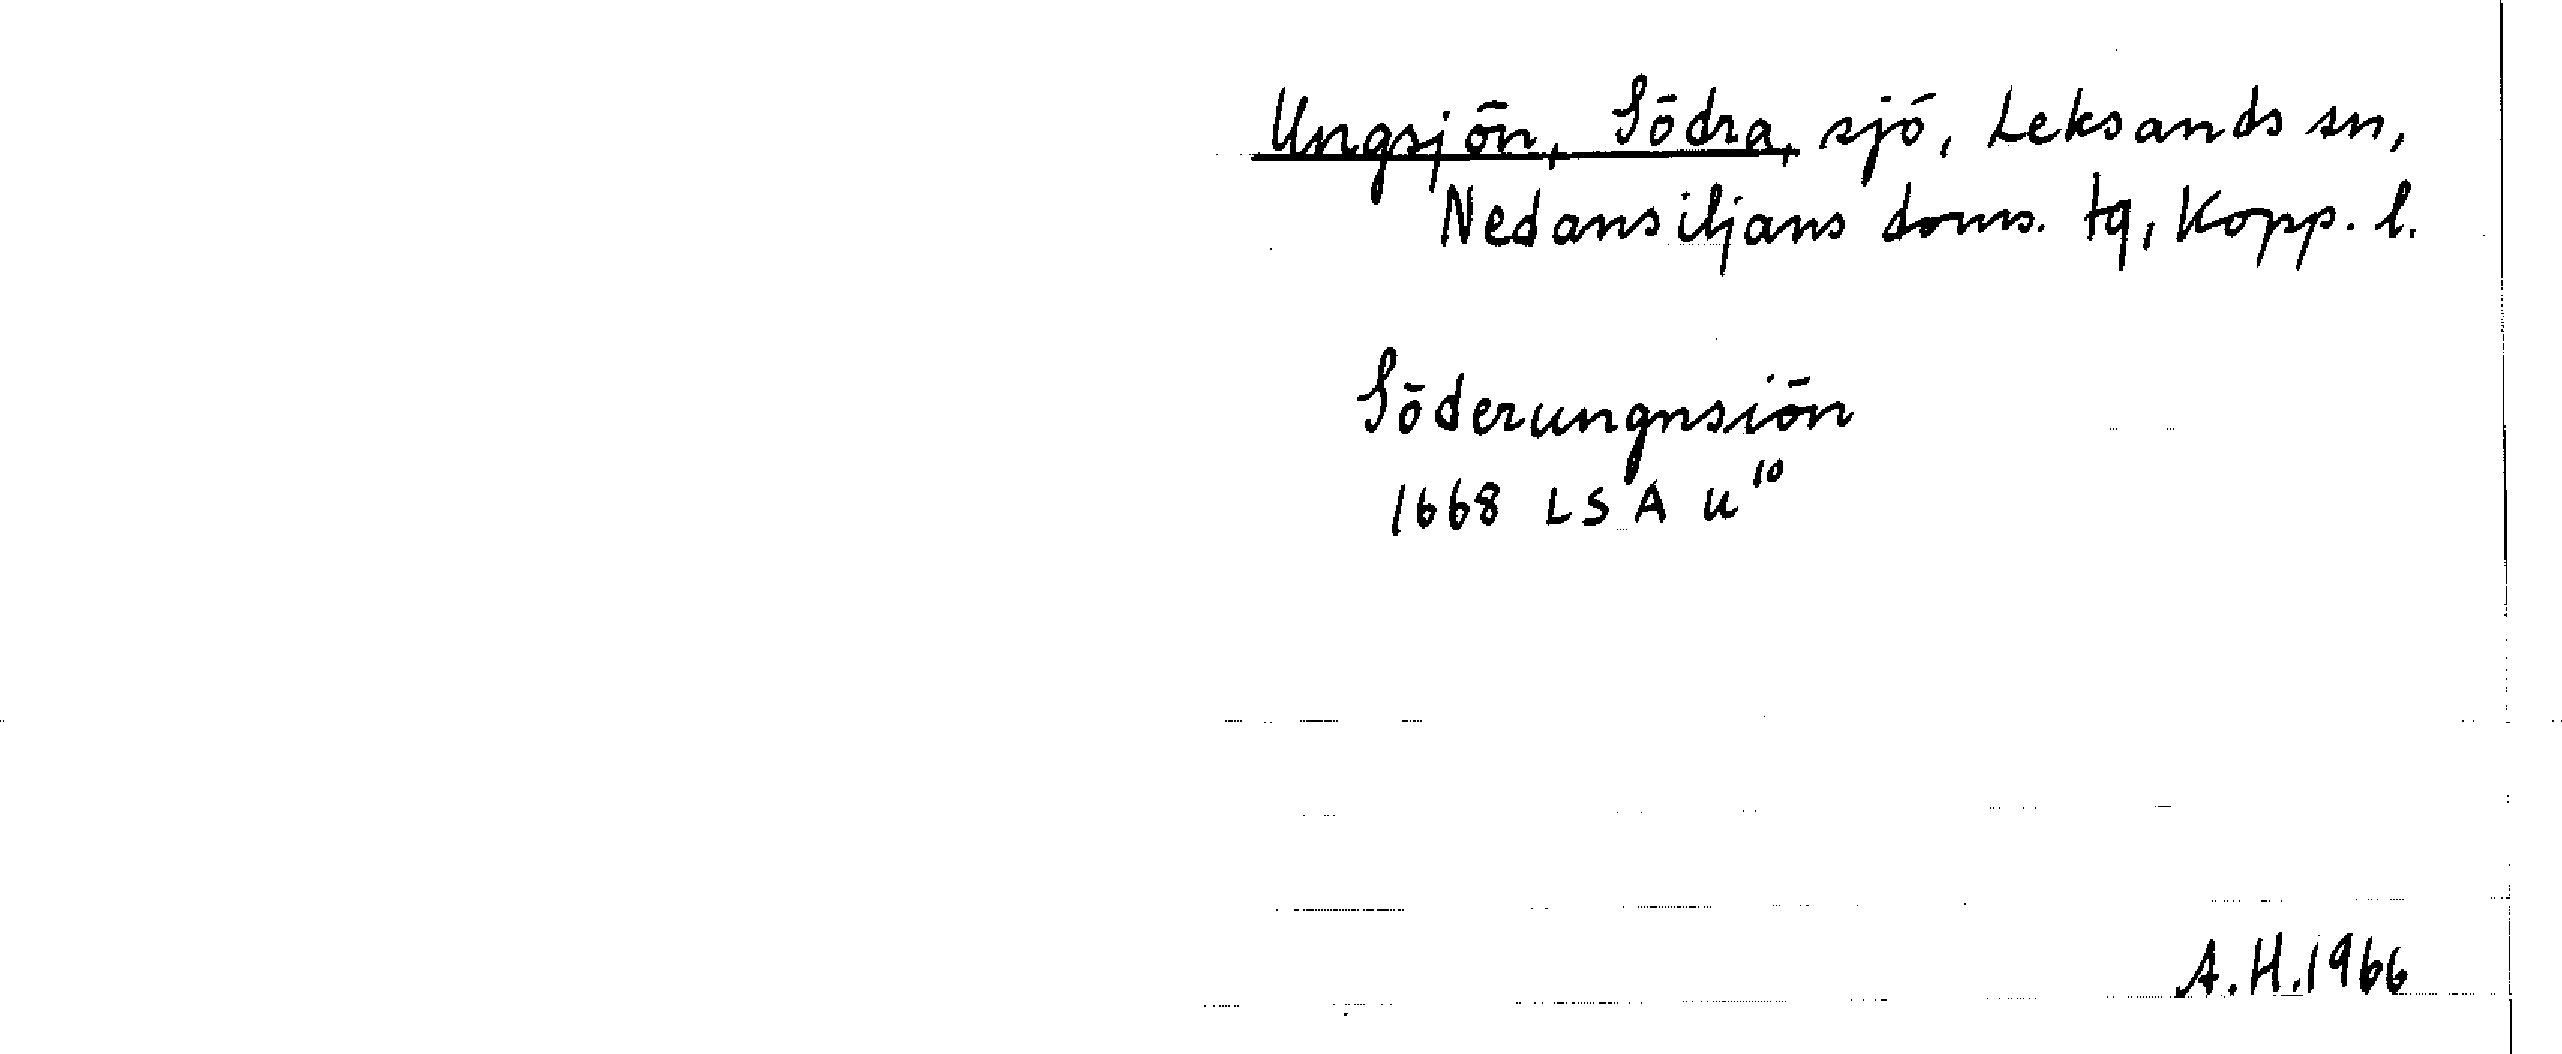 Ungsjön, Södra, sjö, Leksands sn,
Nedansiljans doms. tg, Kopp. l.
Söderungnsiön
1668 LSA U¹⁰
A.H. 1966